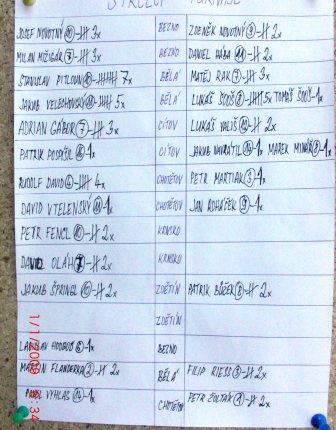 STŘELCI TURNAJE
JOSEF NOVOTNÝ 10 - 3x BEZNO ZDENĚK NOVOTNÝ 9 - 2x
MILAN MIŽIGÁR 7 - 3x BEZNO DANIEL HÁBA 2x
STANISLAV PITLOUN 7x BĚLÁ MATĚJ RAK 7 - 3x
JAKUB VELECHOVSKÝ 5x BĚLÁ LUKÁŠ 5x TOMÁŠ 1x
ADRIAN GÁBOR 7 - 3x CÍTOV LUKÁŠ VALIŠ 2x
PATRIK POSPÍŠIL 1x CÍTOV JAKUB NAVRÁTIL 14 - 1x MAREK 1x
RUDOLF DAVID 4x CHOTĚTOV PETR MARTIAK 3 - 1x
DAVID VTELENSKÝ 1x CHOTĚTOV JAN ROHÁČEK 9 - 1x
PETR FENCL 2x KRNSKO
DAVID OLÁH 7 - 2x KRNSKO
JAKUB ŠPRINGL 2x ZDĚTÍN PATRIK 2x
ZDĚTÍN
LADISLAV 1x BEZNO
MARTIN FLANDERKA 2 - 2x BĚLÁ FILIP 2x
PAVEL VÝHLAS 14 - 1x CHOTĚTOV PETR 2x
1/1/2009